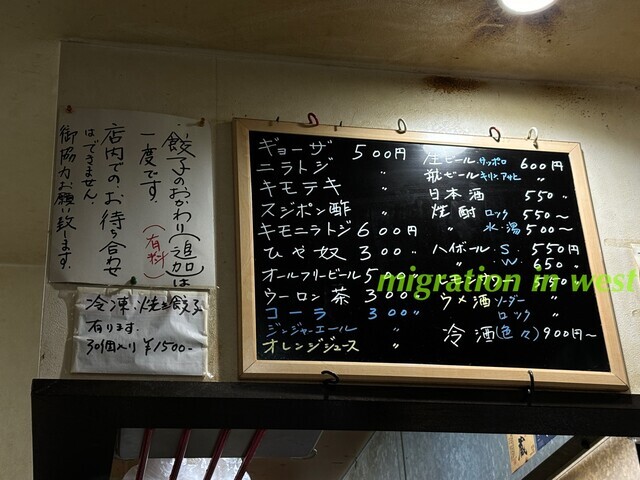 餃子のおかわり(追加)は
一度です。(有料)
店内でのお待ち合わせ
はできません。
御協力お願い致します。
冷凍・焼き餃子
有ります。
30個入り ¥1500-
ギョーザ 500円
ニラトジ 〃
キモテキ 〃
スジポン酢 〃
キモニラトジ 600円
ひや奴 300〃
オールフリービール 500
ウーロン茶 300
コーラ 300〃
ジンジャーエール 〃
オレンジジュース 〃
生ビール・サッポロ 600円
瓶ビール キリン・アサヒ 〃
日本酒 550〃
焼酎 ロック 550〜
〃 水・湯 500〜
ハイボール・S. 550円
〃 ・W. 650〃
レモンサワー 550
ウメ酒 ソーダー 〃
ロック 〃
冷酒(色々) 900円〜
migration in west
蔵